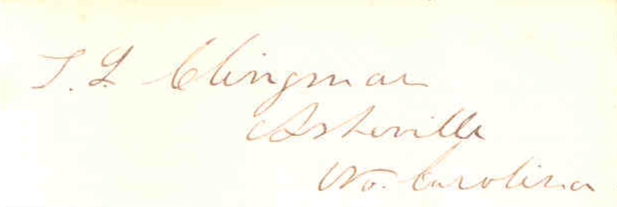 T. L. Clingman
Asheville
No. Carolina